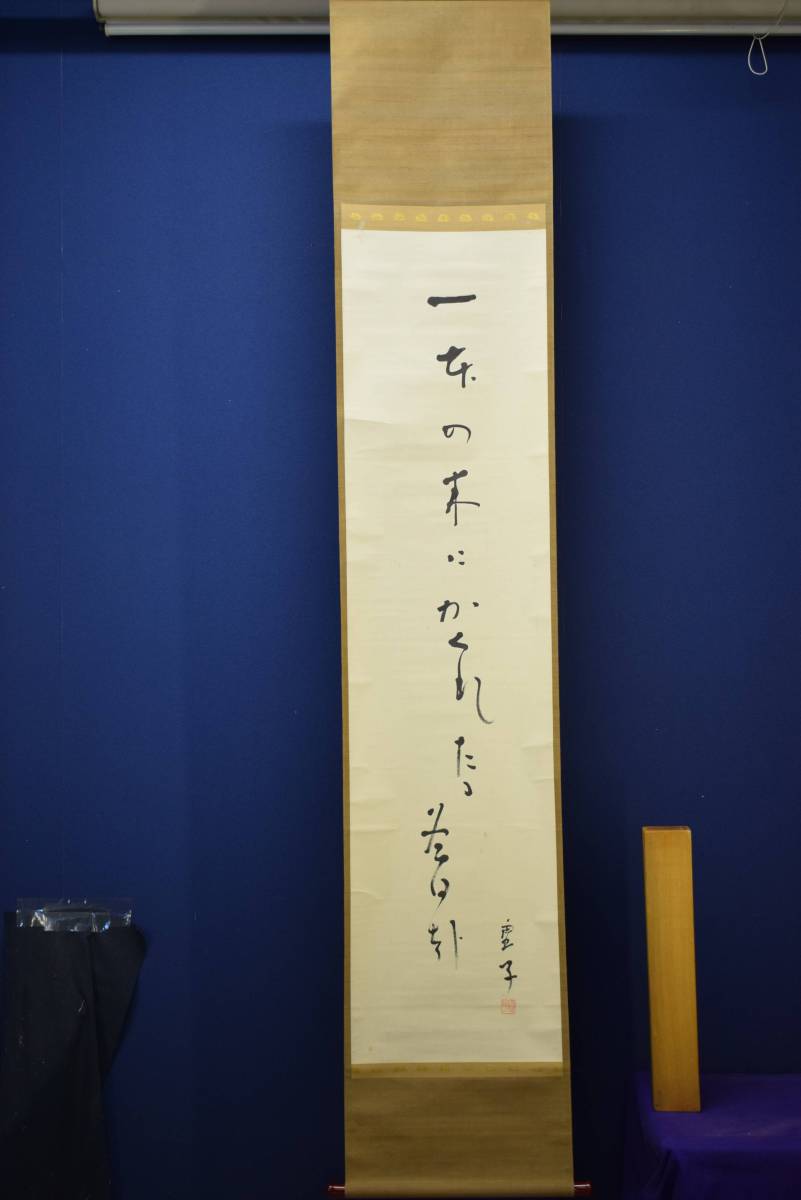 一本の にかくれたる 哉
虚子